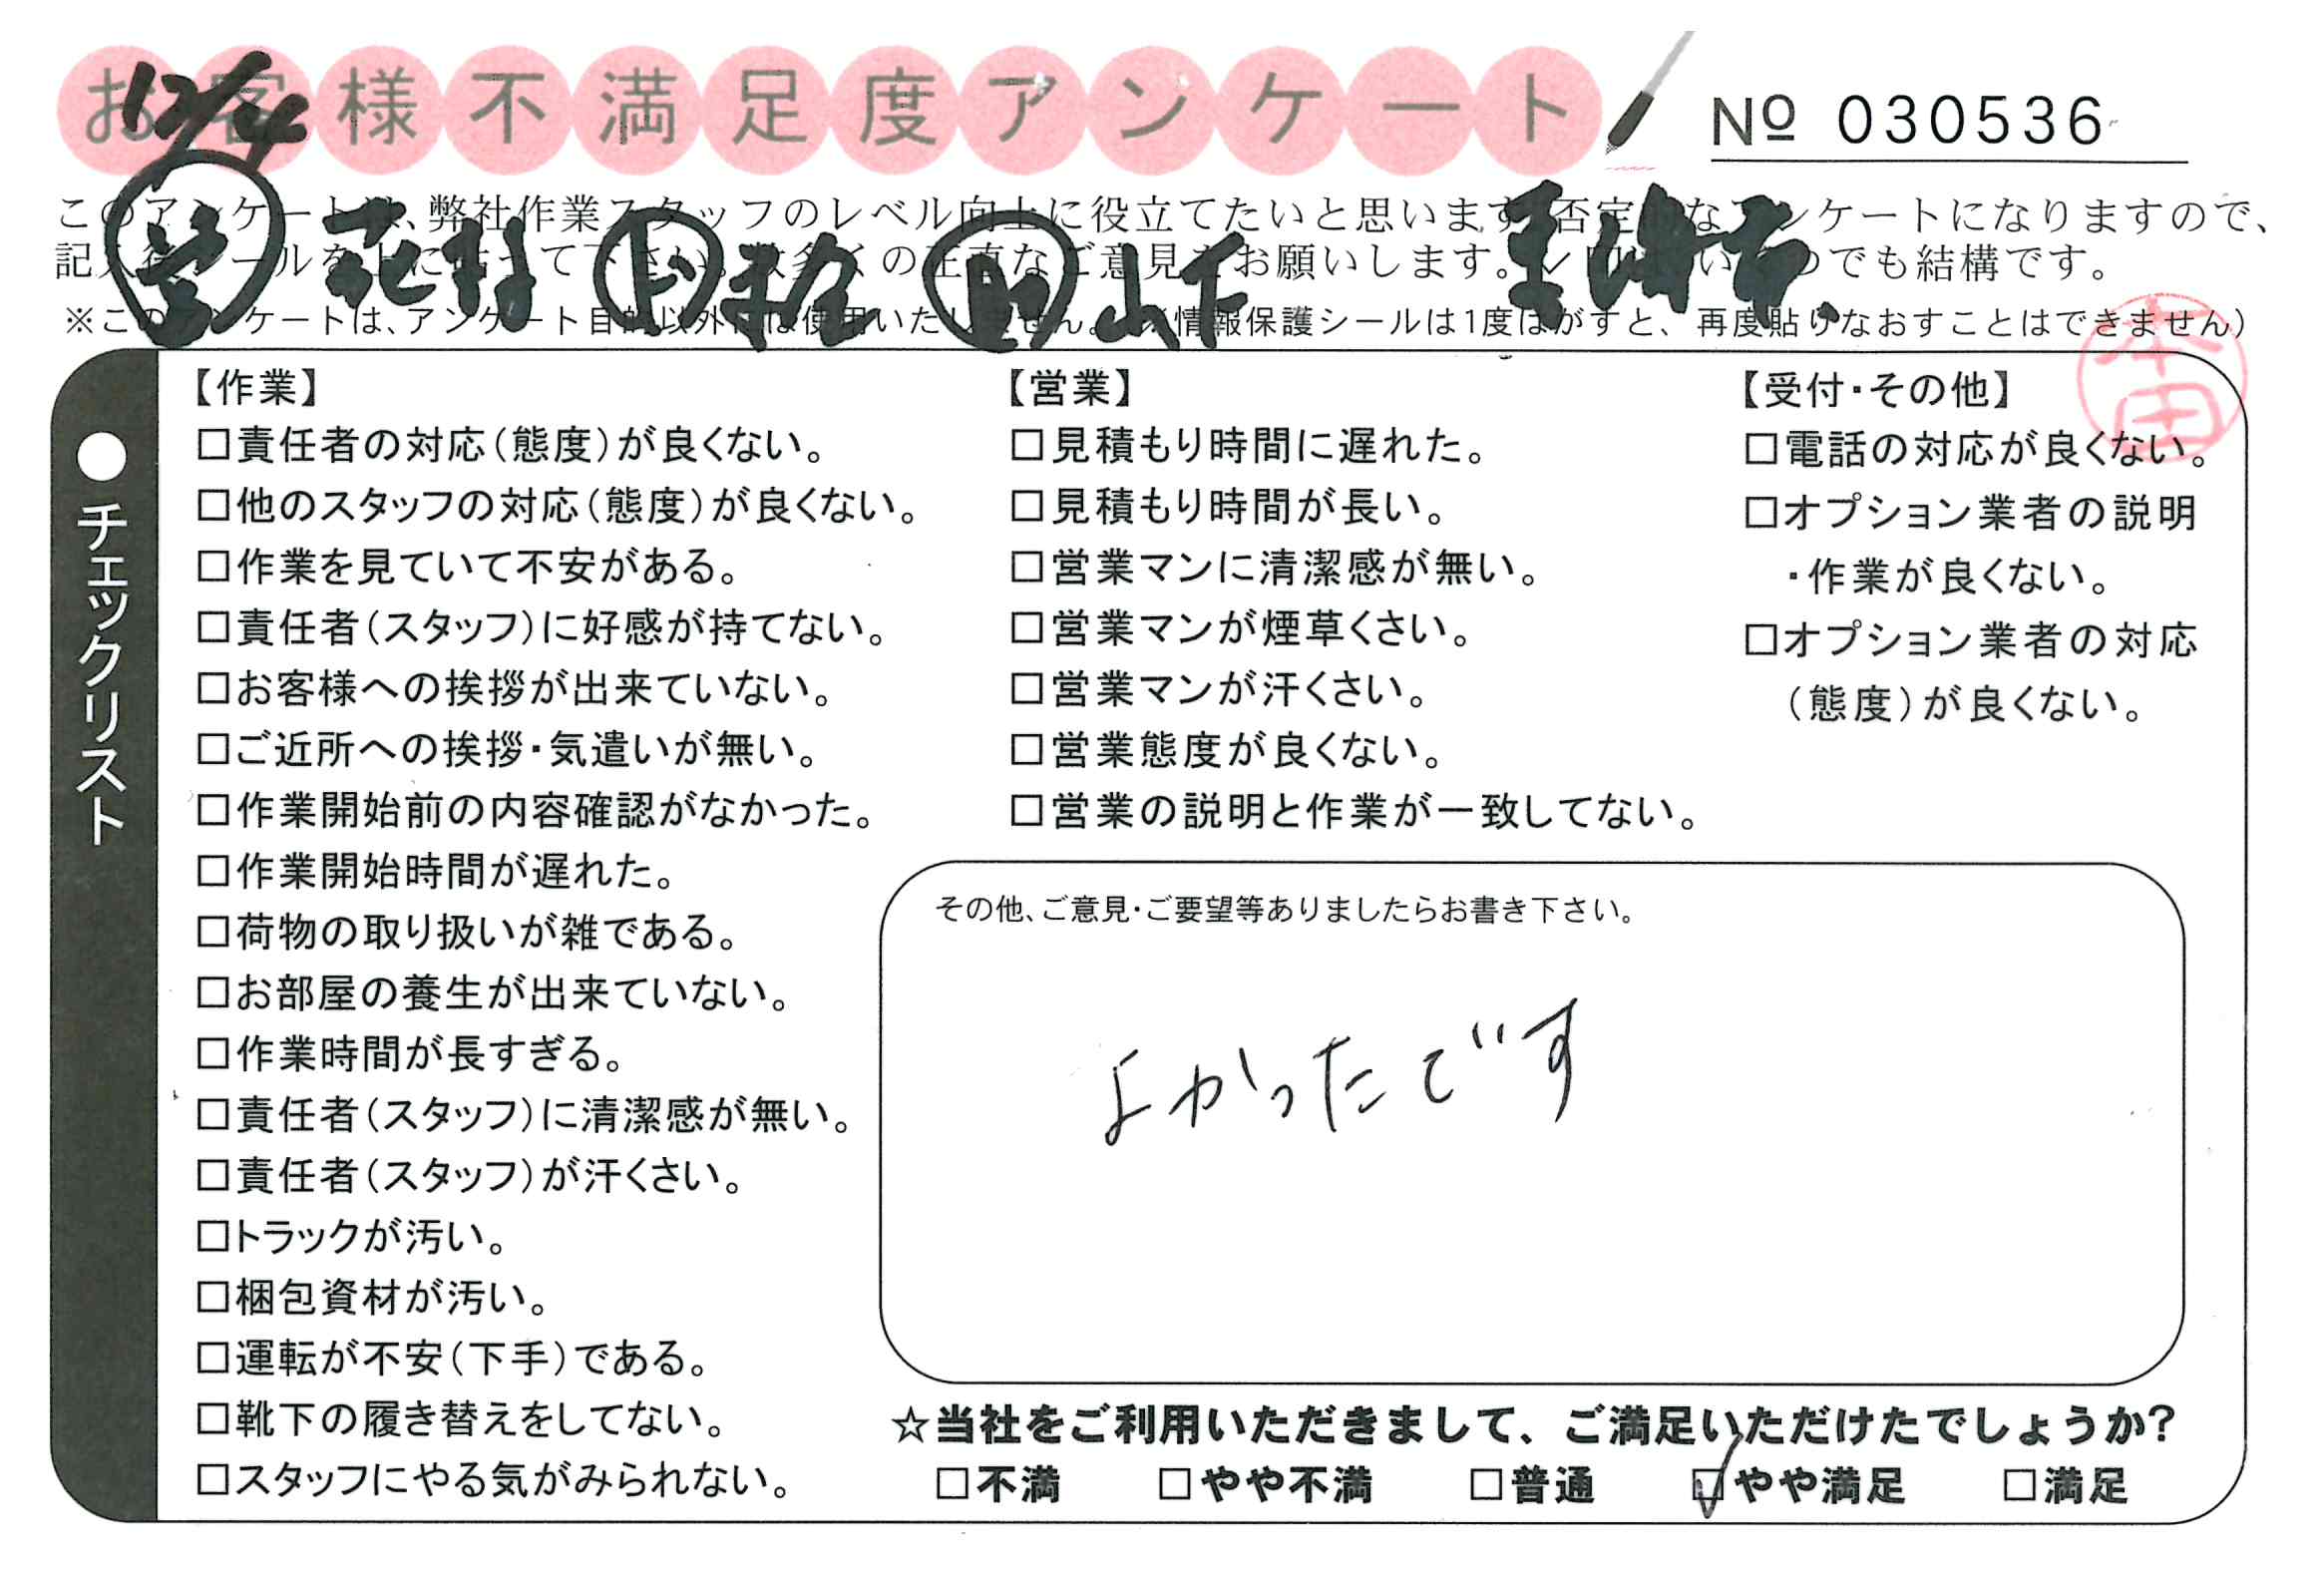 お客様不満足度アンケート
№ 030536
12/24
営 花村 ド 助 山下 東海市
このアンケートは、弊社作業スタッフのレベル向上に役立てたいと思います。否定的なアンケートになりますので、
記入後シールを上に貼って下さい。数多くの正直なご意見をお願いします。
※このアンケートは、アンケート目的以外には使用いたしません。 情報保護シールは1度はがすと、再度貼りなおすことはできません)
本田
●チェックリスト
【作業】
□責任者の対応(態度)が良くない。
□他のスタッフの対応(態度)が良くない。
□作業を見ていて不安がある。
□責任者(スタッフ)に好感が持てない。
□お客様への挨拶が出来ていない。
□ご近所への挨拶・気遣いが無い。
□作業開始前の内容確認がなかった。
□作業開始時間が遅れた。
□荷物の取り扱いが雑である。
□お部屋の養生が出来ていない。
□作業時間が長すぎる。
□責任者(スタッフ)に清潔感が無い。
□責任者(スタッフ)が汗くさい。
□トラックが汚い。
□梱包資材が汚い。
□運転が不安(下手)である。
□靴下の履き替えをしてない。
□スタッフにやる気がみられない。
【営業】
□見積もり時間に遅れた。
□見積もり時間が長い。
□営業マンに清潔感が無い。
□営業マンが煙草くさい。
□営業マンが汗くさい。
□営業態度が良くない。
□営業の説明と作業が一致してない。
【受付・その他】
□電話の対応が良くない。
□オプション業者の説明
・作業が良くない。
□オプション業者の対応
(態度)が良くない。
その他、ご意見・ご要望等ありましたらお書き下さい。
よかったです
☆当社をご利用いただきまして、ご満足いただけたでしょうか?
□不満 □やや不満 □普通 ☑やや満足 □満足